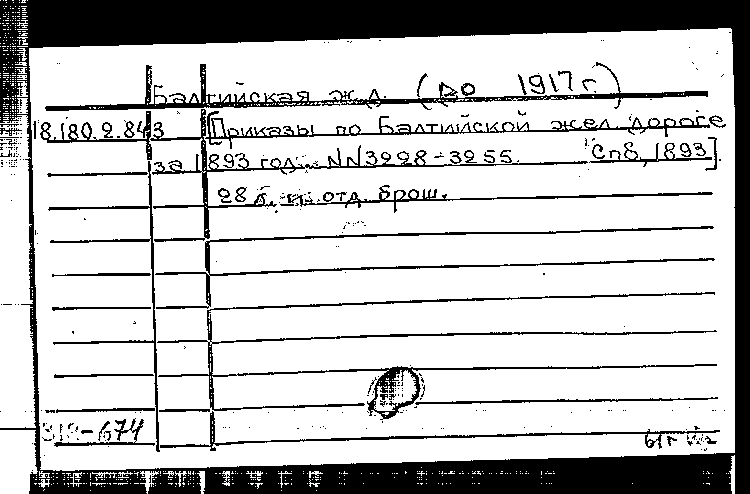 Балтийская ж.д. (до 1917 г.)
18.180.2.843 [Приказы по Балтийской жел. дороге
за 1893 год. NN3228-3255. Спб, 1893].
28 отд. брош.
-674
61г